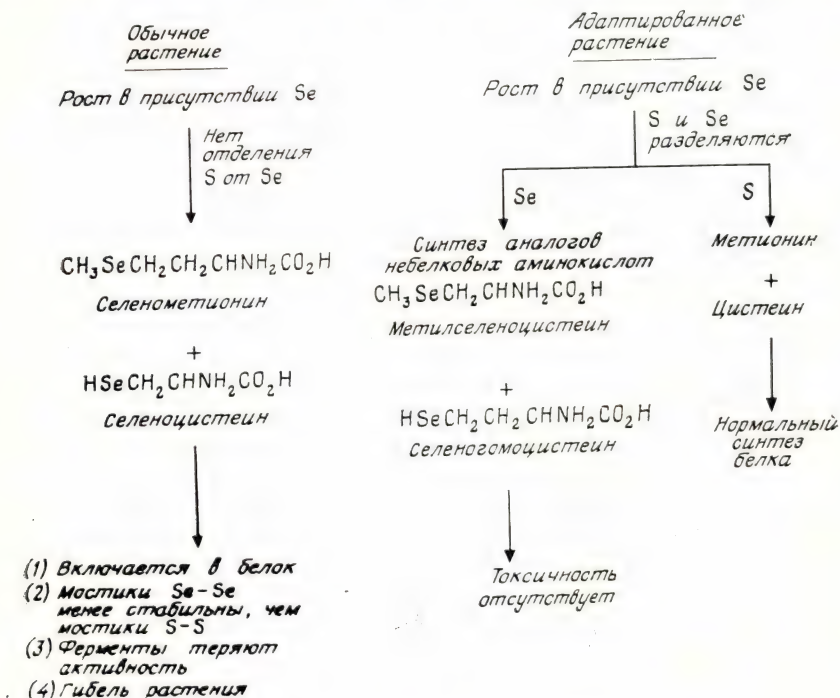 Обычное
растение
Рост в присутствии Se
Нет
отделения
S от Se
CH₃SeCH₂CH₂CHNH₂CO₂H
Селенометионин
+
HSeCH₂CHNH₂CO₂H
Селеноцистеин
(1) Включается в белок
(2) Мостики Se–Se
менее стабильны, чем
мостики S–S
(3) Ферменты теряют
активность
(4) Гибель растения
Адаптированное
растение
Рост в присутствии Se
S и Se
разделяются
Se
S
Синтез аналогов
небелковых аминокислот
CH₃SeCH₂CHNH₂CO₂H
Метилселеноцистеин
+
HSeCH₂CH₂CHNH₂CO₂H
Селеногомоцистеин
Токсичность
отсутствует
Метионин
+
Цистеин
Нормальный
синтез
белка